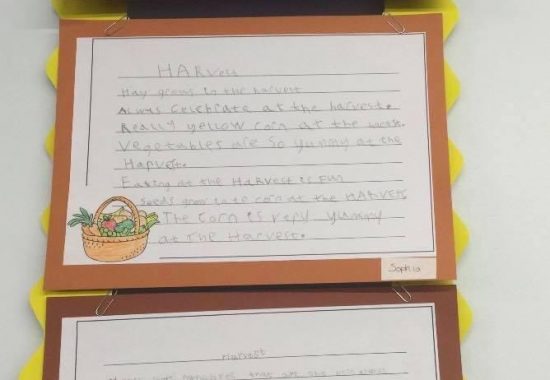 HARvest
Hay grows to the harvest
Alwas celebrate at the harvest.
Really yellow corn at the
Vegetables are So yummy at the
Harvest.
Eating at the HaRvest is fun
Seeds grow in to corn at the HARVEST
The corn is very yummy
at The Harvest.
Sophia
Harvest
that are